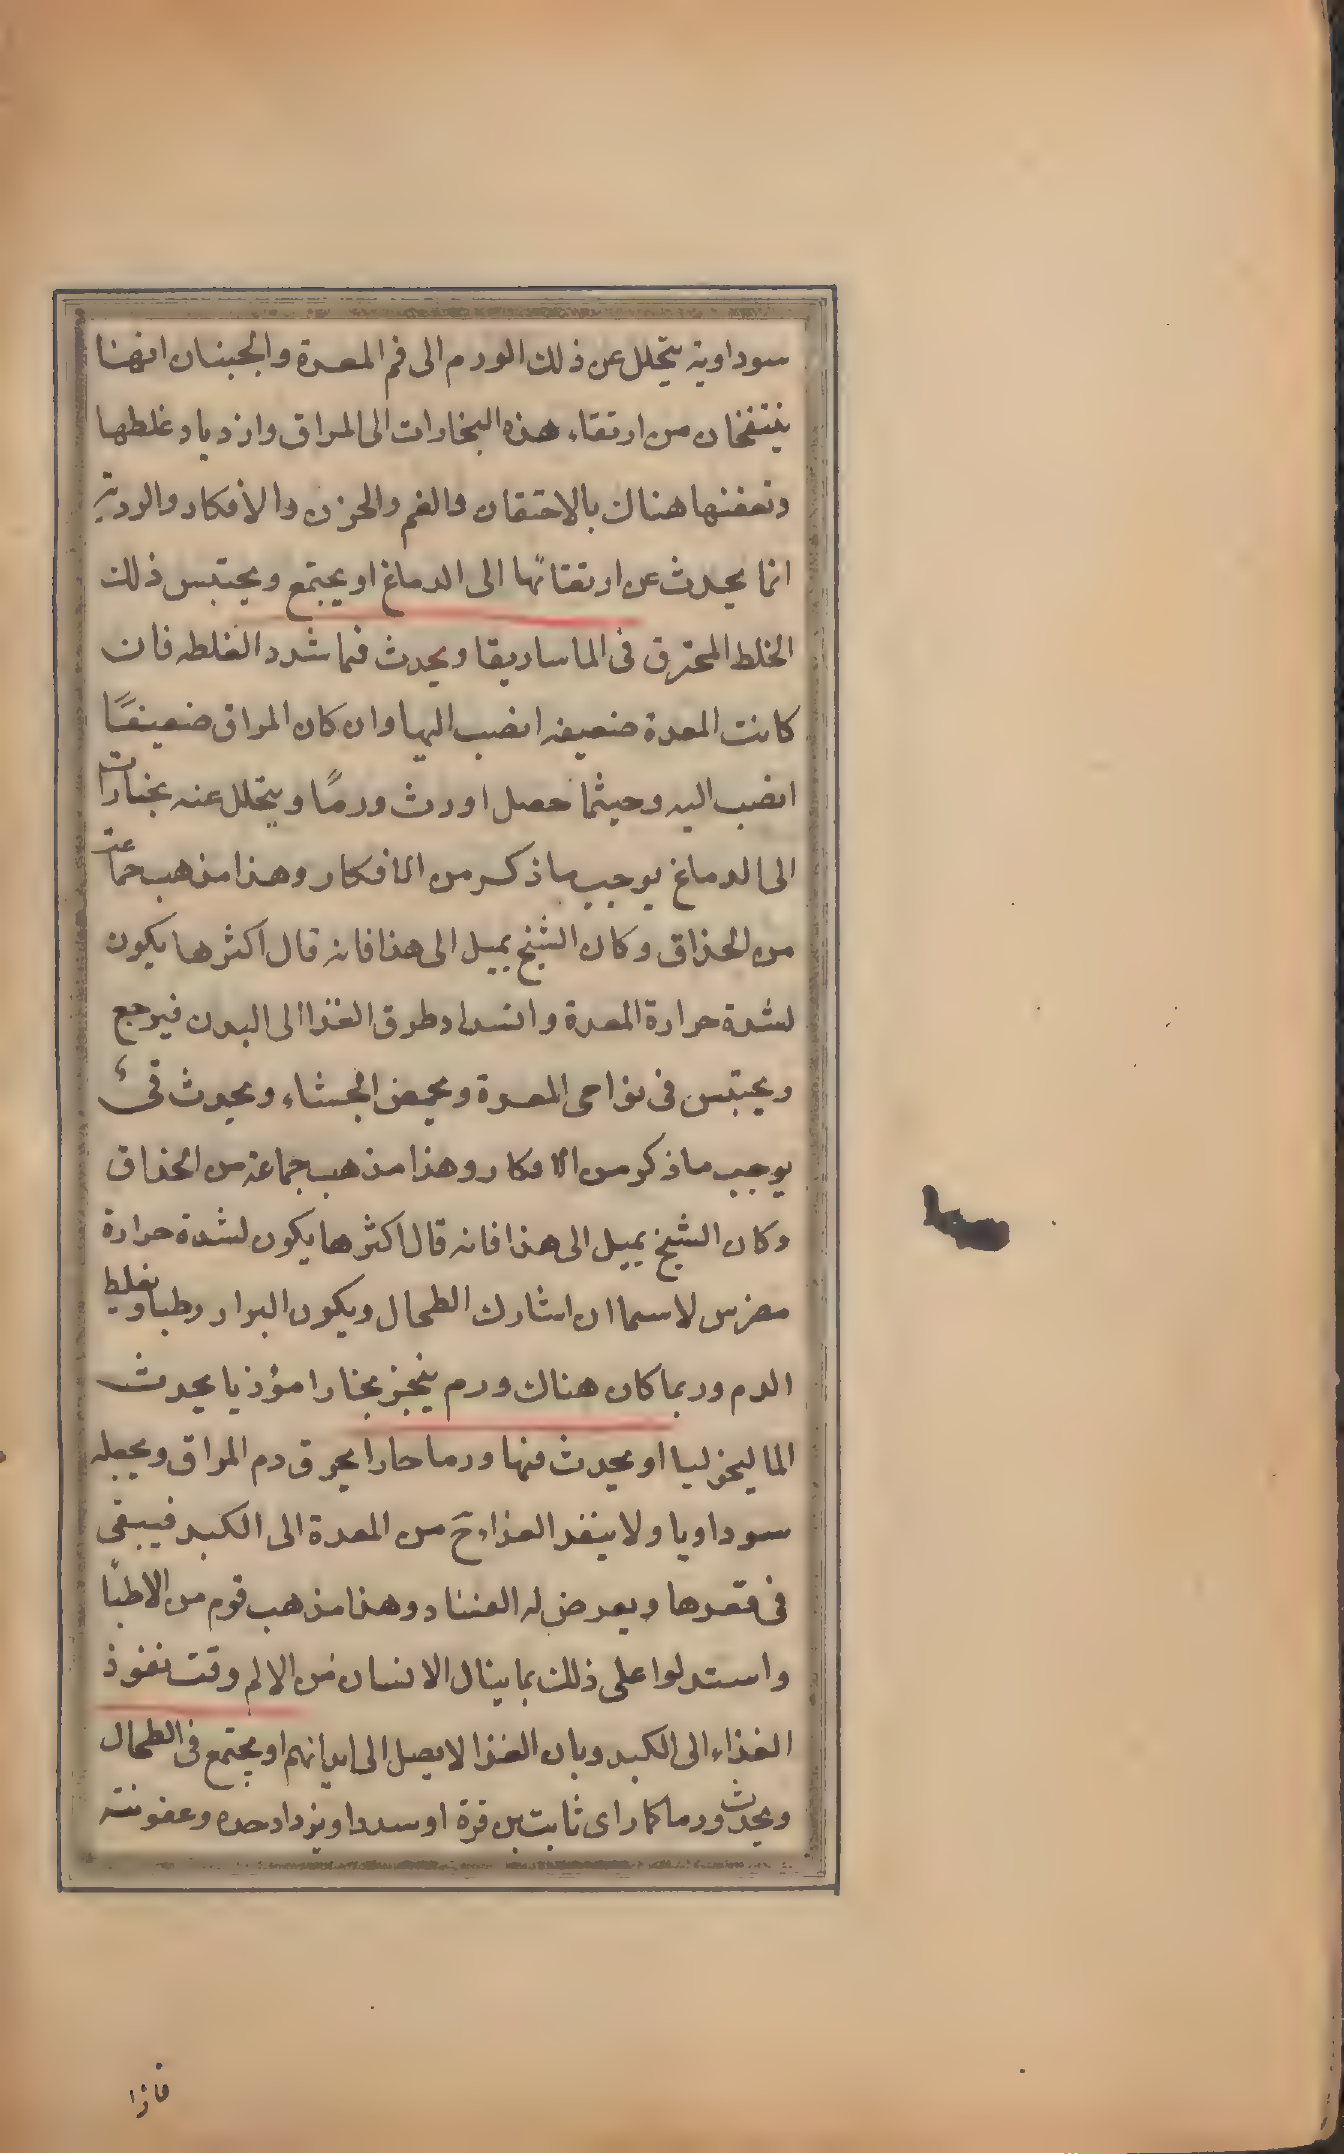 سوداوية يتحلل عن ذلك الورم الى فم المعدة والجبنان انهنا
ينتفخان من ارتقاء هذه البخارات الى المراق وازدياد غلطها
وتعفنها هناك بالاحتقان والغم والحزن والافكار والردية
انما يحدث عن ارتقائها الى الدماغ او يجتمع ويحتبس ذلك
الخلط المحترق فى الماساريقا ويحدث فيها سدد الغلطه فان
كانت المعدة ضعيفه انصب اليها وان كان المراق ضعيفًا
انصب اليه وحيثما حصل اورث ورمًا ويتحلل عنه بخارات
الى الدماغ يوجب ما ذكر من الافكار وهذا مذهب جماعة
من الحذاق وكان الشيخ يميل الى هذا فانه قال اكثرها يكون
لشدة حرارة المعدة وانسداد طرق الغذا الى البدن فيرجع
ويحتبس فى نواحى المعدة ويحمض الجشاء ويحدث قىء
يوجب ما ذكر من الافكار وهذا مذهب جماعة من الحذاق
وكان الشيخ يميل الى هذا فانه قال اكثرها يكون لشدة حرارة
مضرس لاسيما ان اشارك الطحال ويكون البراز رطبا ويغلظ
الدم وربما كان هناك ورم ينجز بخارا مؤذيا يحدث
الماليخوليا او يحدث فيها ورما حارا يحرق دم المراق ويجعله
سوداويا ولا ينفذ الغذاء ح من المعدة الى الكبد فيبقى
فى قعرها ويعرض له الفساد وهذا مذهب قوم من الاطبّا
واستدلوا على ذلك بما ينال الانسان من الالم وقت نفوذ
الغذاء الى الكبد وبان الغذا لا يصل الى ابدانهم او يجتمع فى الطحال
ويحدث ورما كما راى ثابت بن قرة او سددا ويزداد حده وعفونته
فاذا